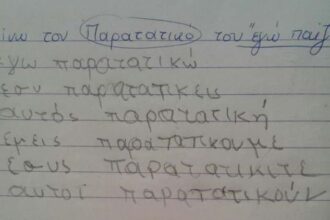 τον Παρατατικό του "εγώ παίζ
εγω παρατατικώ
εσυ παρατατικεις
αυτός παρατατική
εμεις παρατατικουμε
εσυς παρατατικιτε
αυτοί παρατατικούν